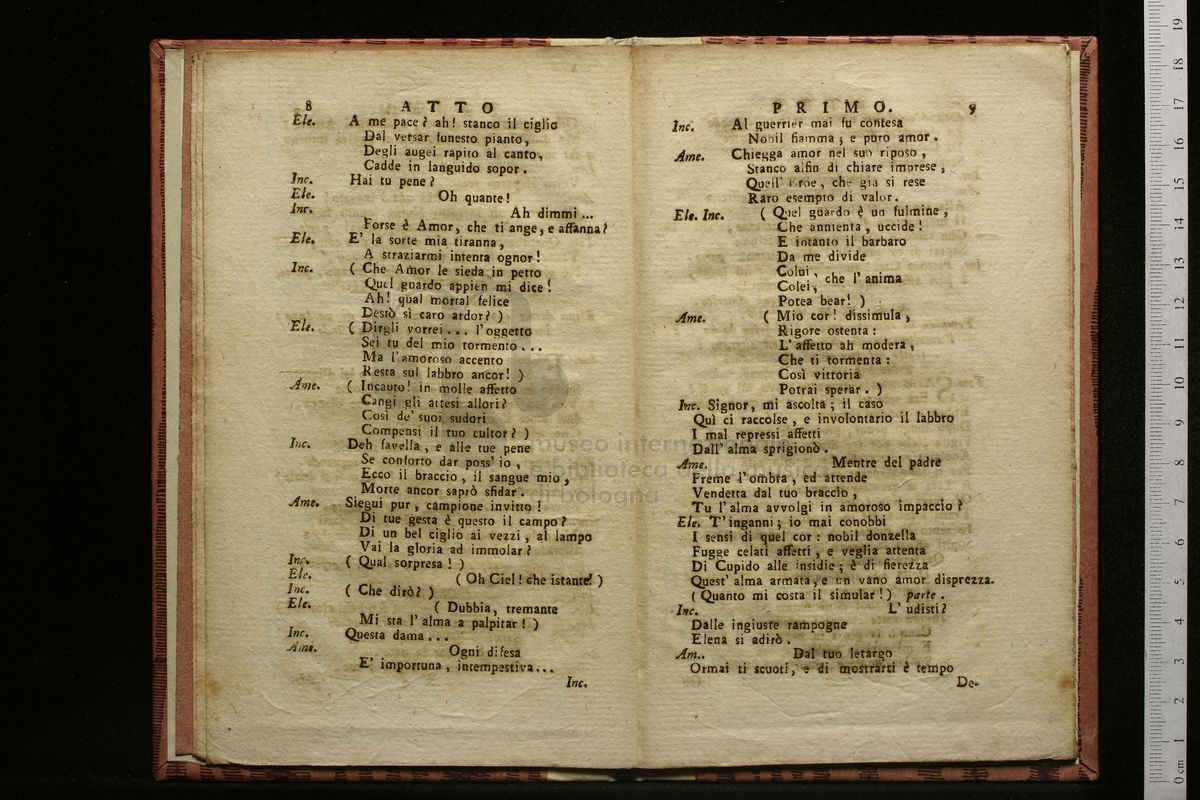 8 ATTO
Ele. A me pace? ah! stanco il ciglio
Dal versar funesto pianto,
Degli augei rapito al canto,
Cadde in languido sopor.
Inc. Hai tu pene?
Ele. Oh quante!
Inc. Ah dimmi...
Forse è Amor, che ti ange, e affanna?
Ele. E' la sorte mia tiranna,
A straziarmi intenta ognor!
Inc. ( Che Amor le sieda in petto
Quel guardo appien mi dice!
Ah! qual mortal felice
Destò sì caro ardor? )
Ele. ( Dirgli vorrei... l'oggetto
Sei tu del mio tormento...
Ma l'amoroso accento
Resta sul labbro ancor! )
Ame. ( Incauto! in molle affetto
Cangi gli attesi allori?
Così de' suoi sudori
Compensi il tuo cultor? )
Inc. Deh favella, e alle tue pene
Se conforto dar poss' io,
Ecco il braccio, il sangue mio,
Morte ancor saprò sfidar.
Ame. Siegui pur, campione invitto!
Di tue gesta è questo il campo?
Di un bel ciglio ai vezzi, al lampo
Vai la gloria ad immolar?
Inc. ( Qual sorpresa! )
Ele. ( Oh Ciel! che istante! )
Inc. ( Che dirò? )
Ele. ( Dubbia, tremante
Mi sta l'alma a palpitar! )
Inc. Questa dama...
Ame. Ogni difesa
E' importuna, intempestiva...
Inc.
PRIMO. 9
Inc. Al guerrier mai fu contesa
Nobil fiamma; e puro amor.
Ame. Chiegga amor nel suo riposo,
Stanco alfin di chiare imprese,
Quell' Eroe, che già si rese
Raro esempio di valor.
Ele. Inc. ( Quel guardo è un fulmine,
Che annienta, uccide!
E intanto il barbaro
Da me divide
Colui, che l'anima
Colei,
Potea bear! )
Ame. ( Mio cor! dissimula,
Rigore ostenta:
L'affetto ah modera,
Che ti tormenta:
Così vittoria
Potrai sperar. )
Inc. Signor, mi ascolta; il caso
Quì ci raccolse, e involontario il labbro
I mal repressi affetti
Dall' alma sprigionò.
Ame. Mentre del padre
Freme l'ombra, ed attende
Vendetta dal tuo braccio,
Tu l'alma avvolgi in amoroso impaccio?
Ele. T'inganni; io mai conobbi
I sensi di quel cor: nobil donzella
Fugge celati affetti, e veglia attenta
Di Cupido alle insidie; è di fierezza
Quest' alma armata, e un vano amor disprezza.
( Quanto mi costa il simular! ) parte.
Inc. L' udisti?
Dalle ingiuste rampogne
Elena si adirò.
Am.. Dal tuo letargo
Ormai ti scuoti, e di mostrarti è tempo
De-